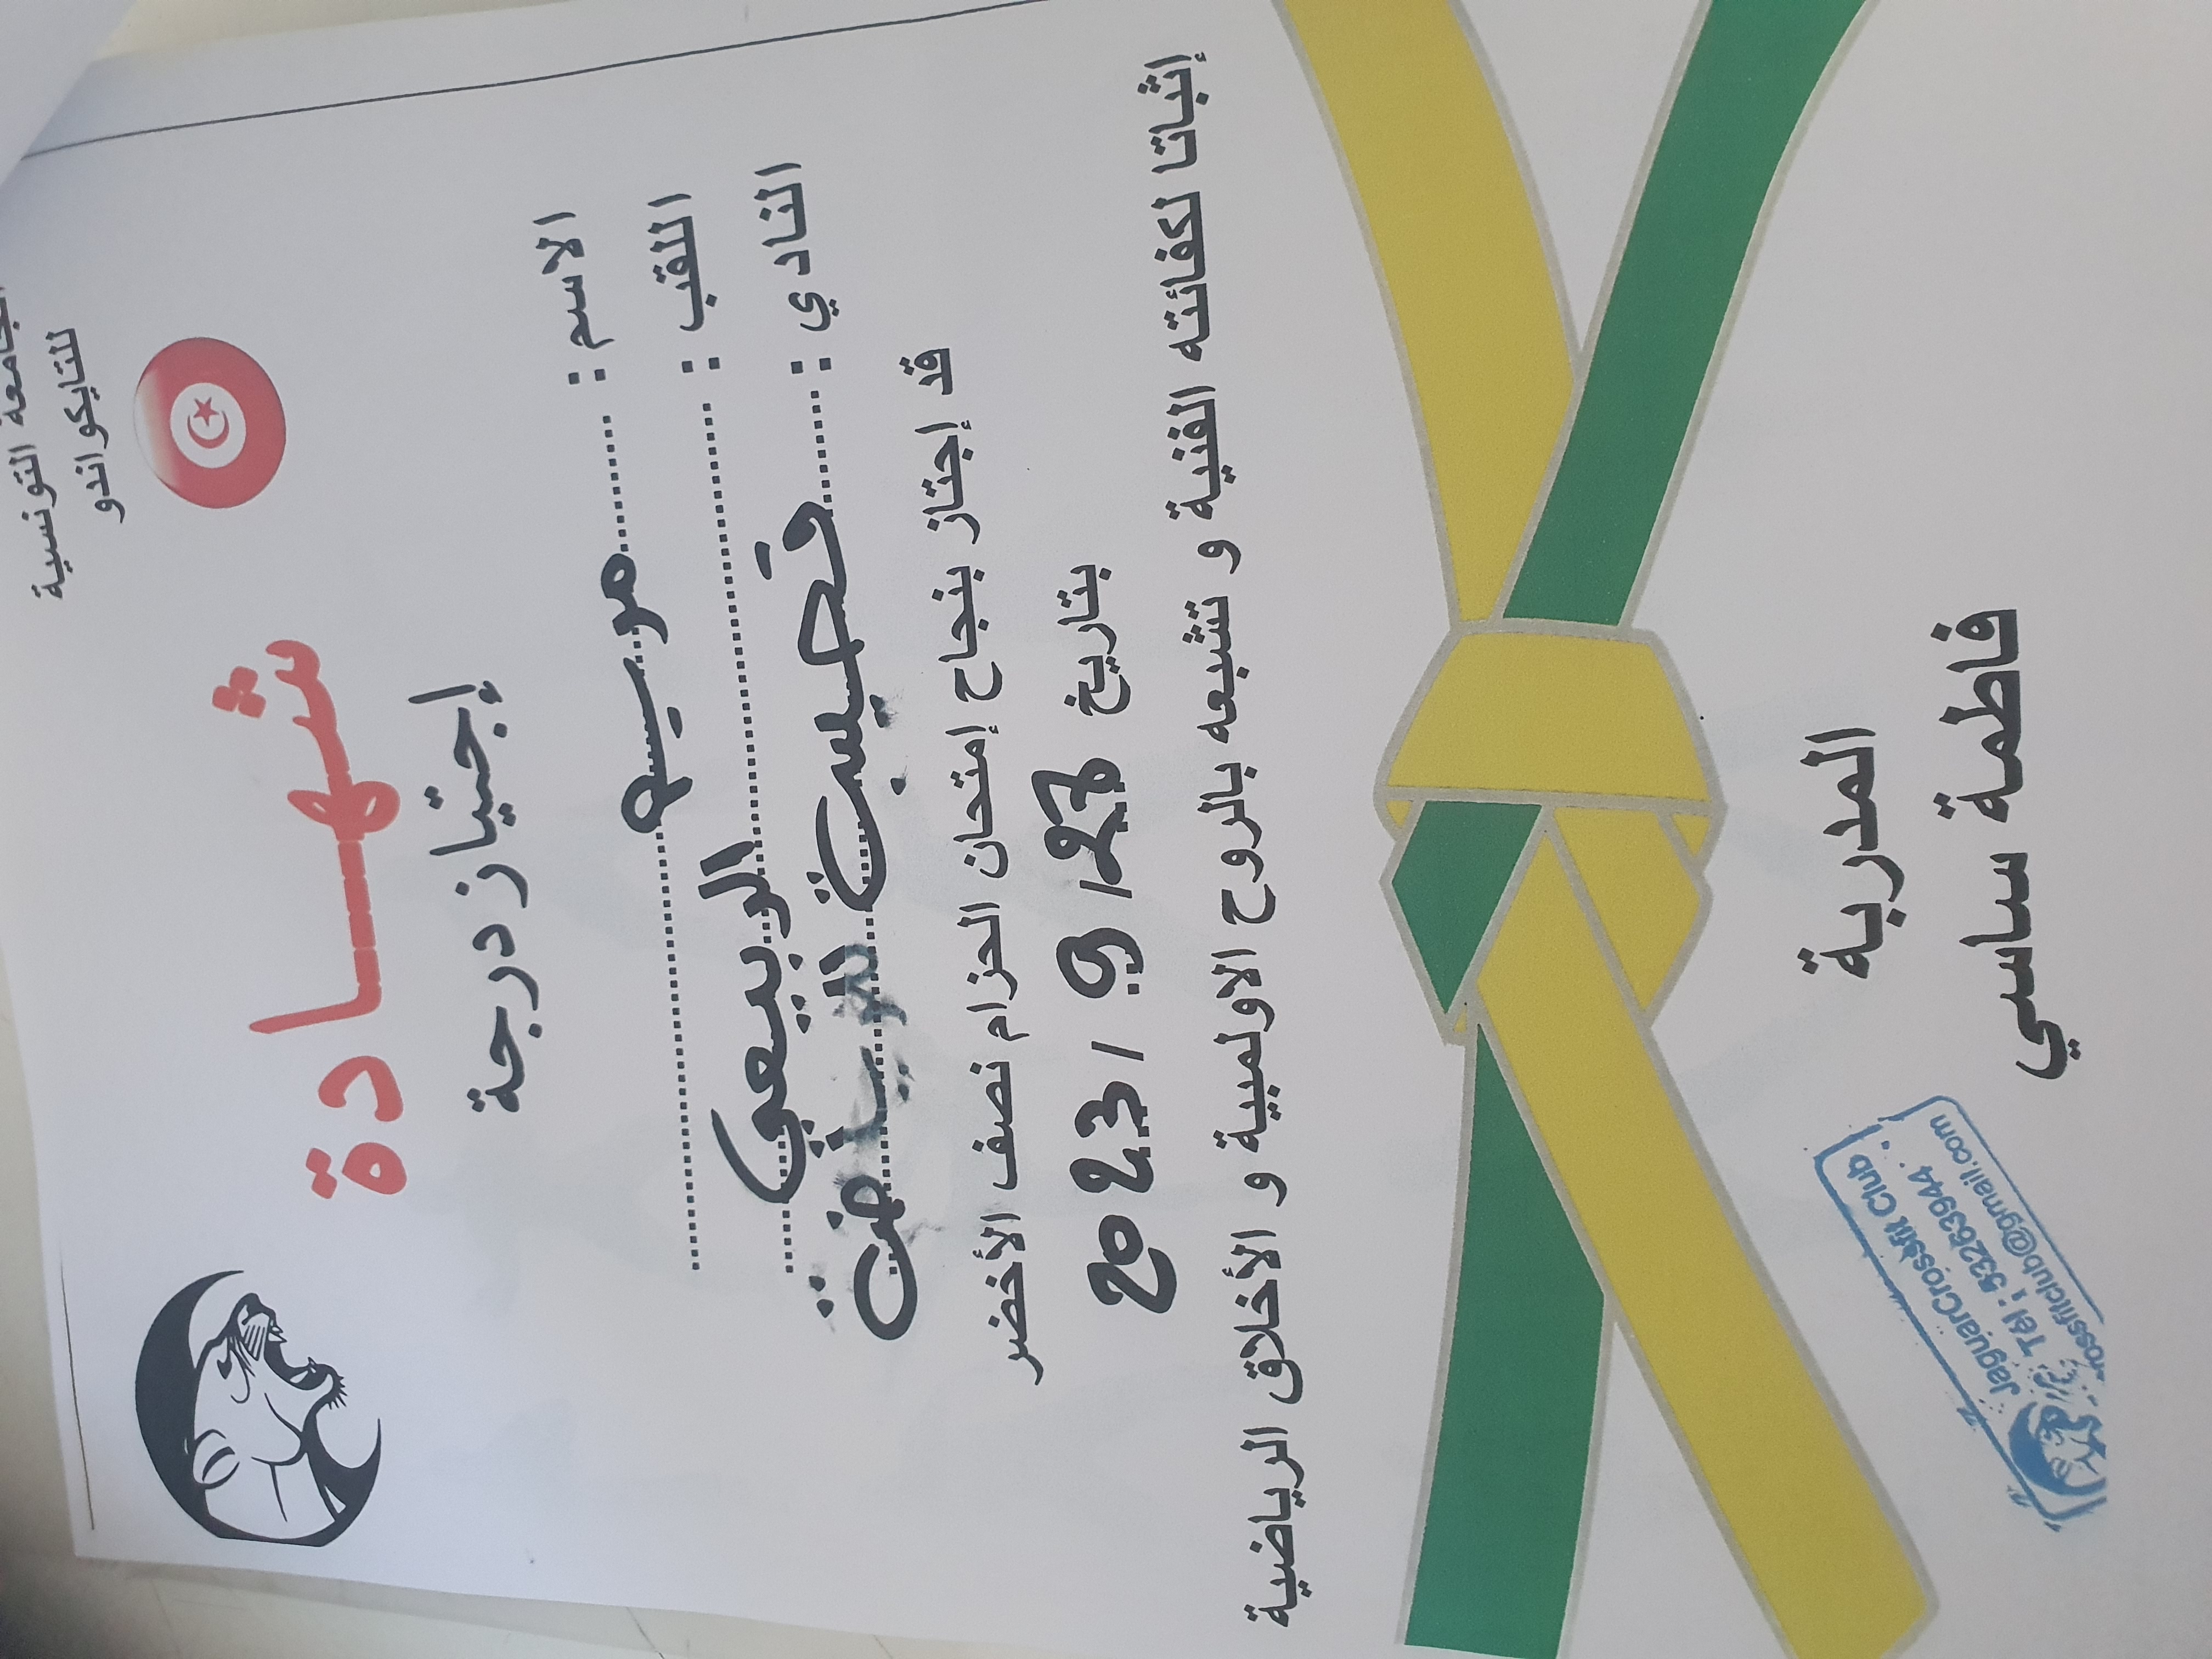 الجامعة التونسية
للتايكواندو
شهادة
إجتياز درجة
الاسم :
اللقب : الربيعي
النادي :
قد إجتاز بنجاح إمتحان الحزام نصف الأخضر
بتاريخ 2023/9/28
إثباتا لكفائته الفنية و تشبعه بالروح الاولمبية و الأخلاق الرياضية
المدربة
فاطمة ساسي
JaguarCrossfit Club
Tél : 53263944
rossfitclub@gmail.com